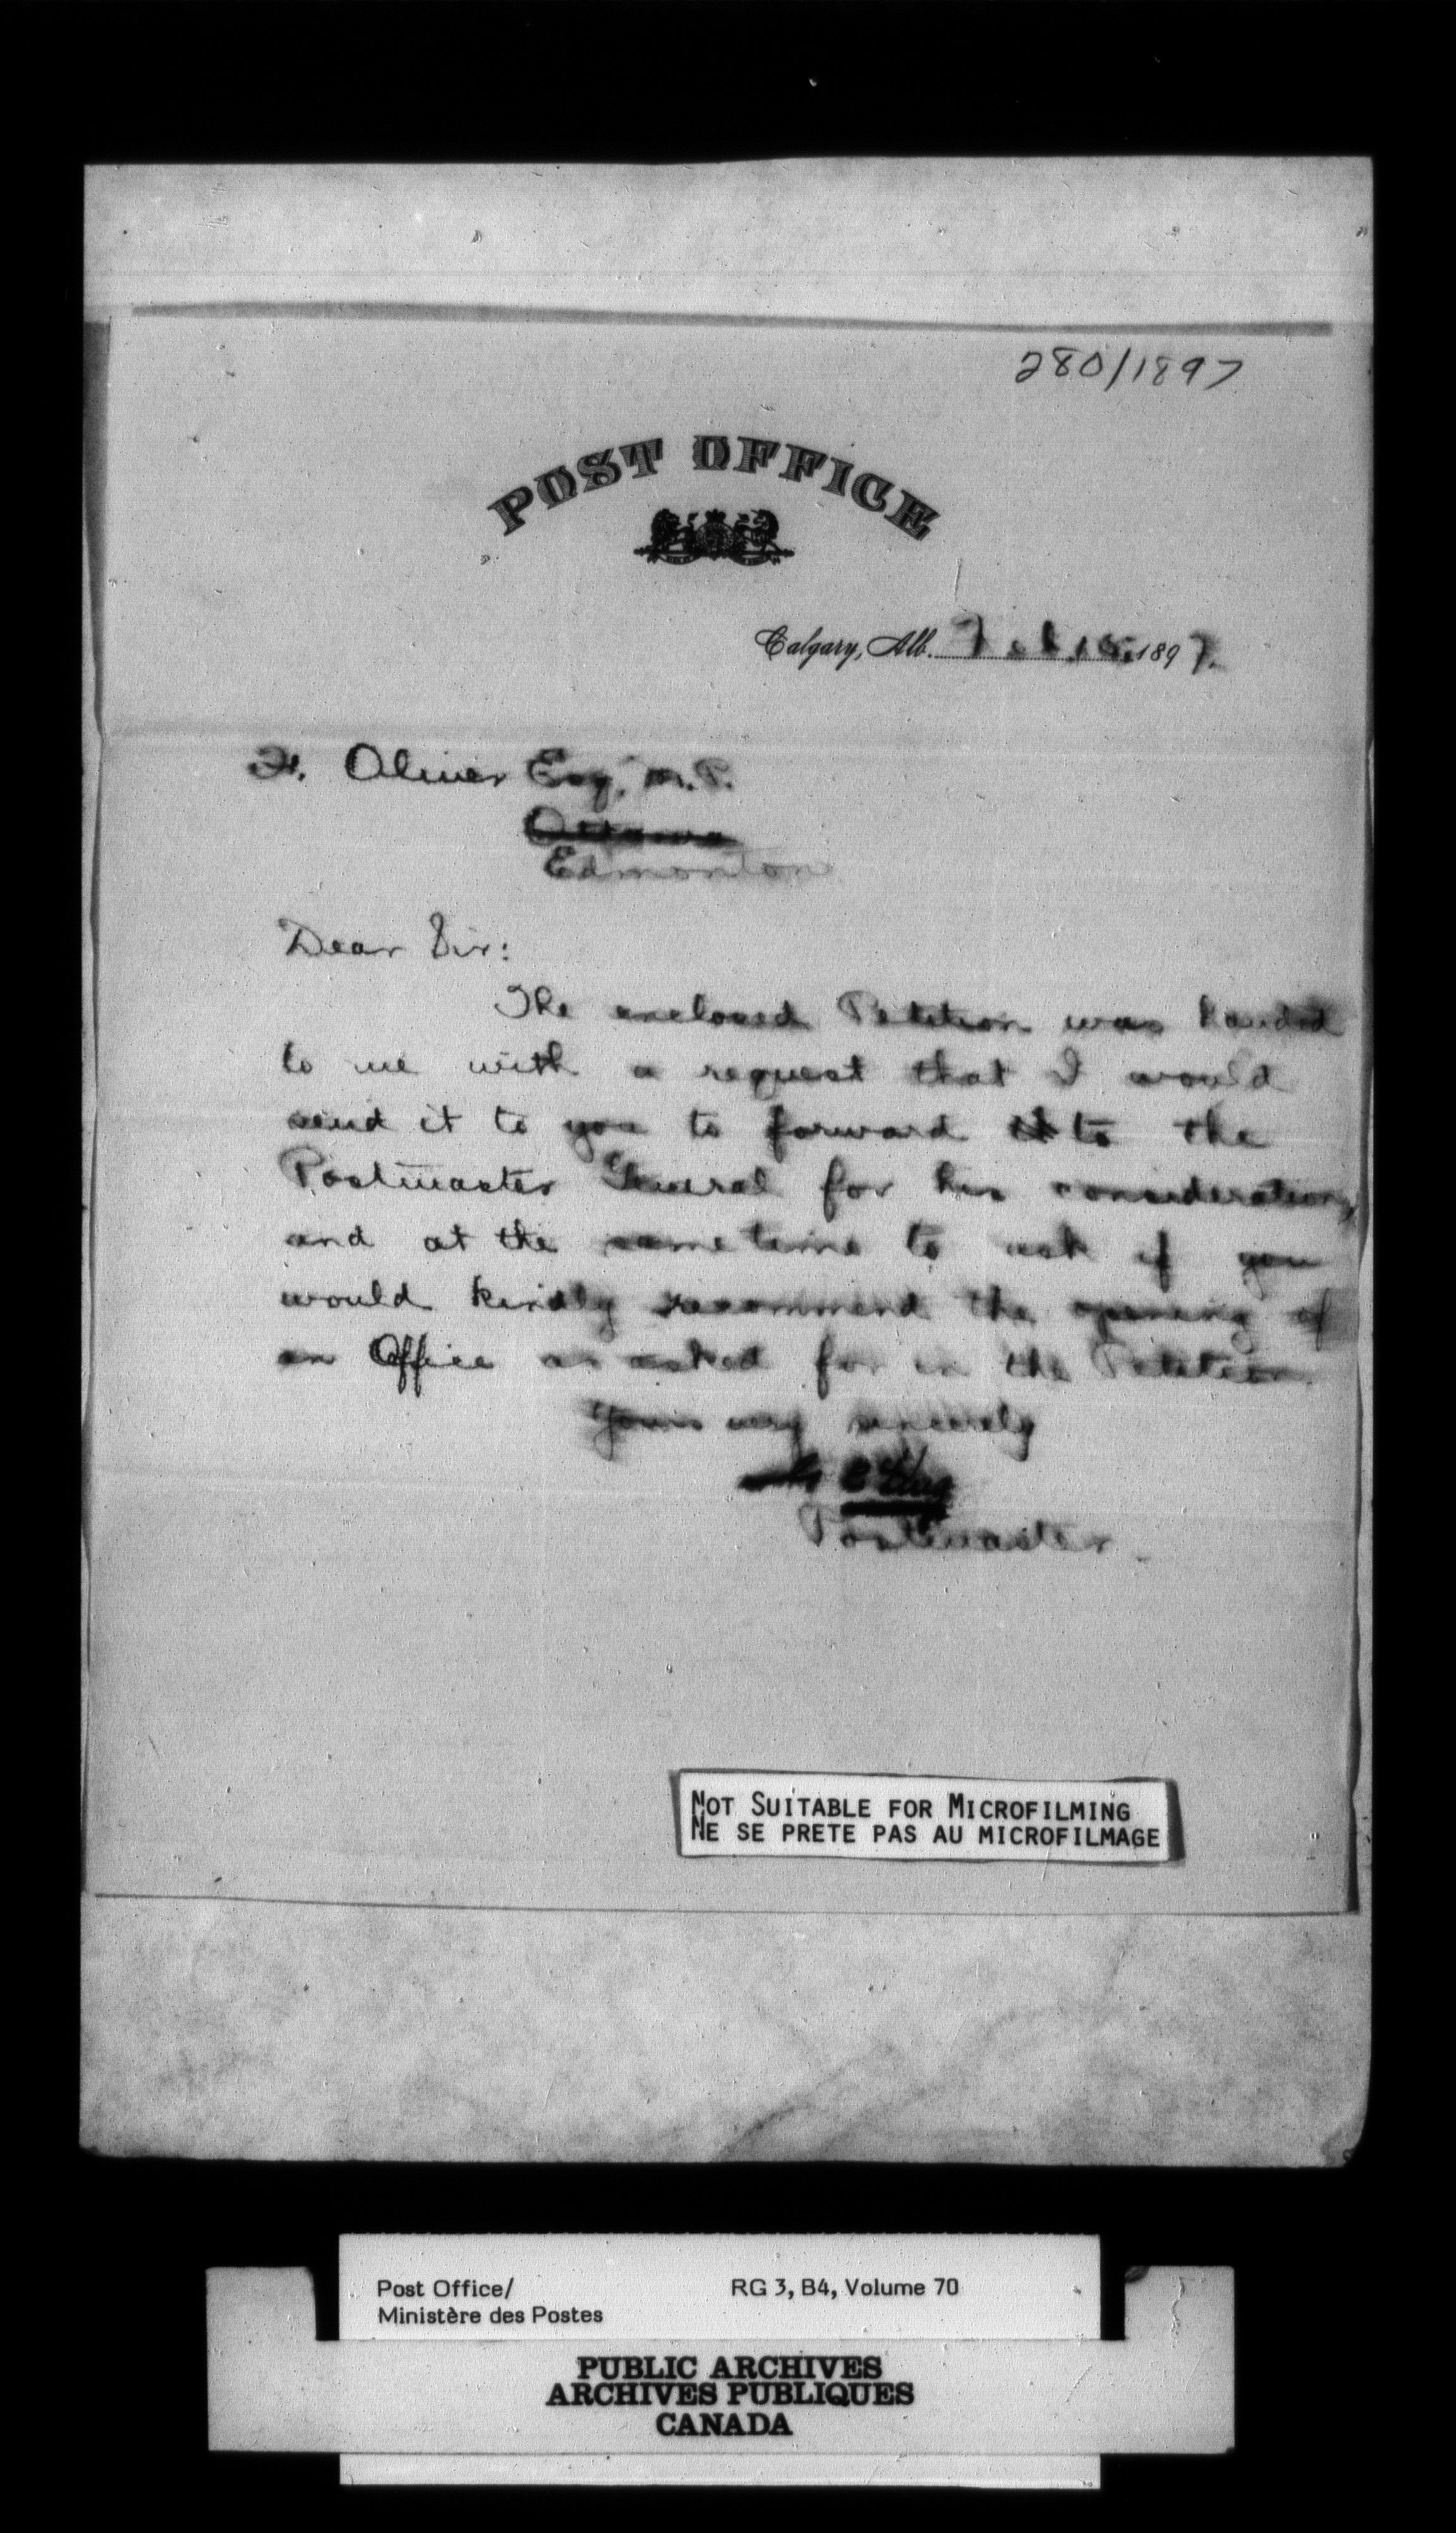 280/1897
POST OFFICE
Calgary, Alb. Feb. 15, 1897.
F. Oliver Esq. M.P.
Ottawa
Edmonton
Dear Sir:
The enclosed Petition was handed
to me with a request that I would
send it to you to forward it to the
Postmaster General for his consideration,
and at the same time to ask if you
would kindly recommend the opening of
an Office as asked for in the Petition
Yours very sincerely
King
Postmaster.
NOT SUITABLE FOR MICROFILMING
NE SE PRETE PAS AU MICROFILMAGE
Post Office/ RG 3, B4, Volume 70
Ministère des Postes
PUBLIC ARCHIVES
ARCHIVES PUBLIQUES
CANADA